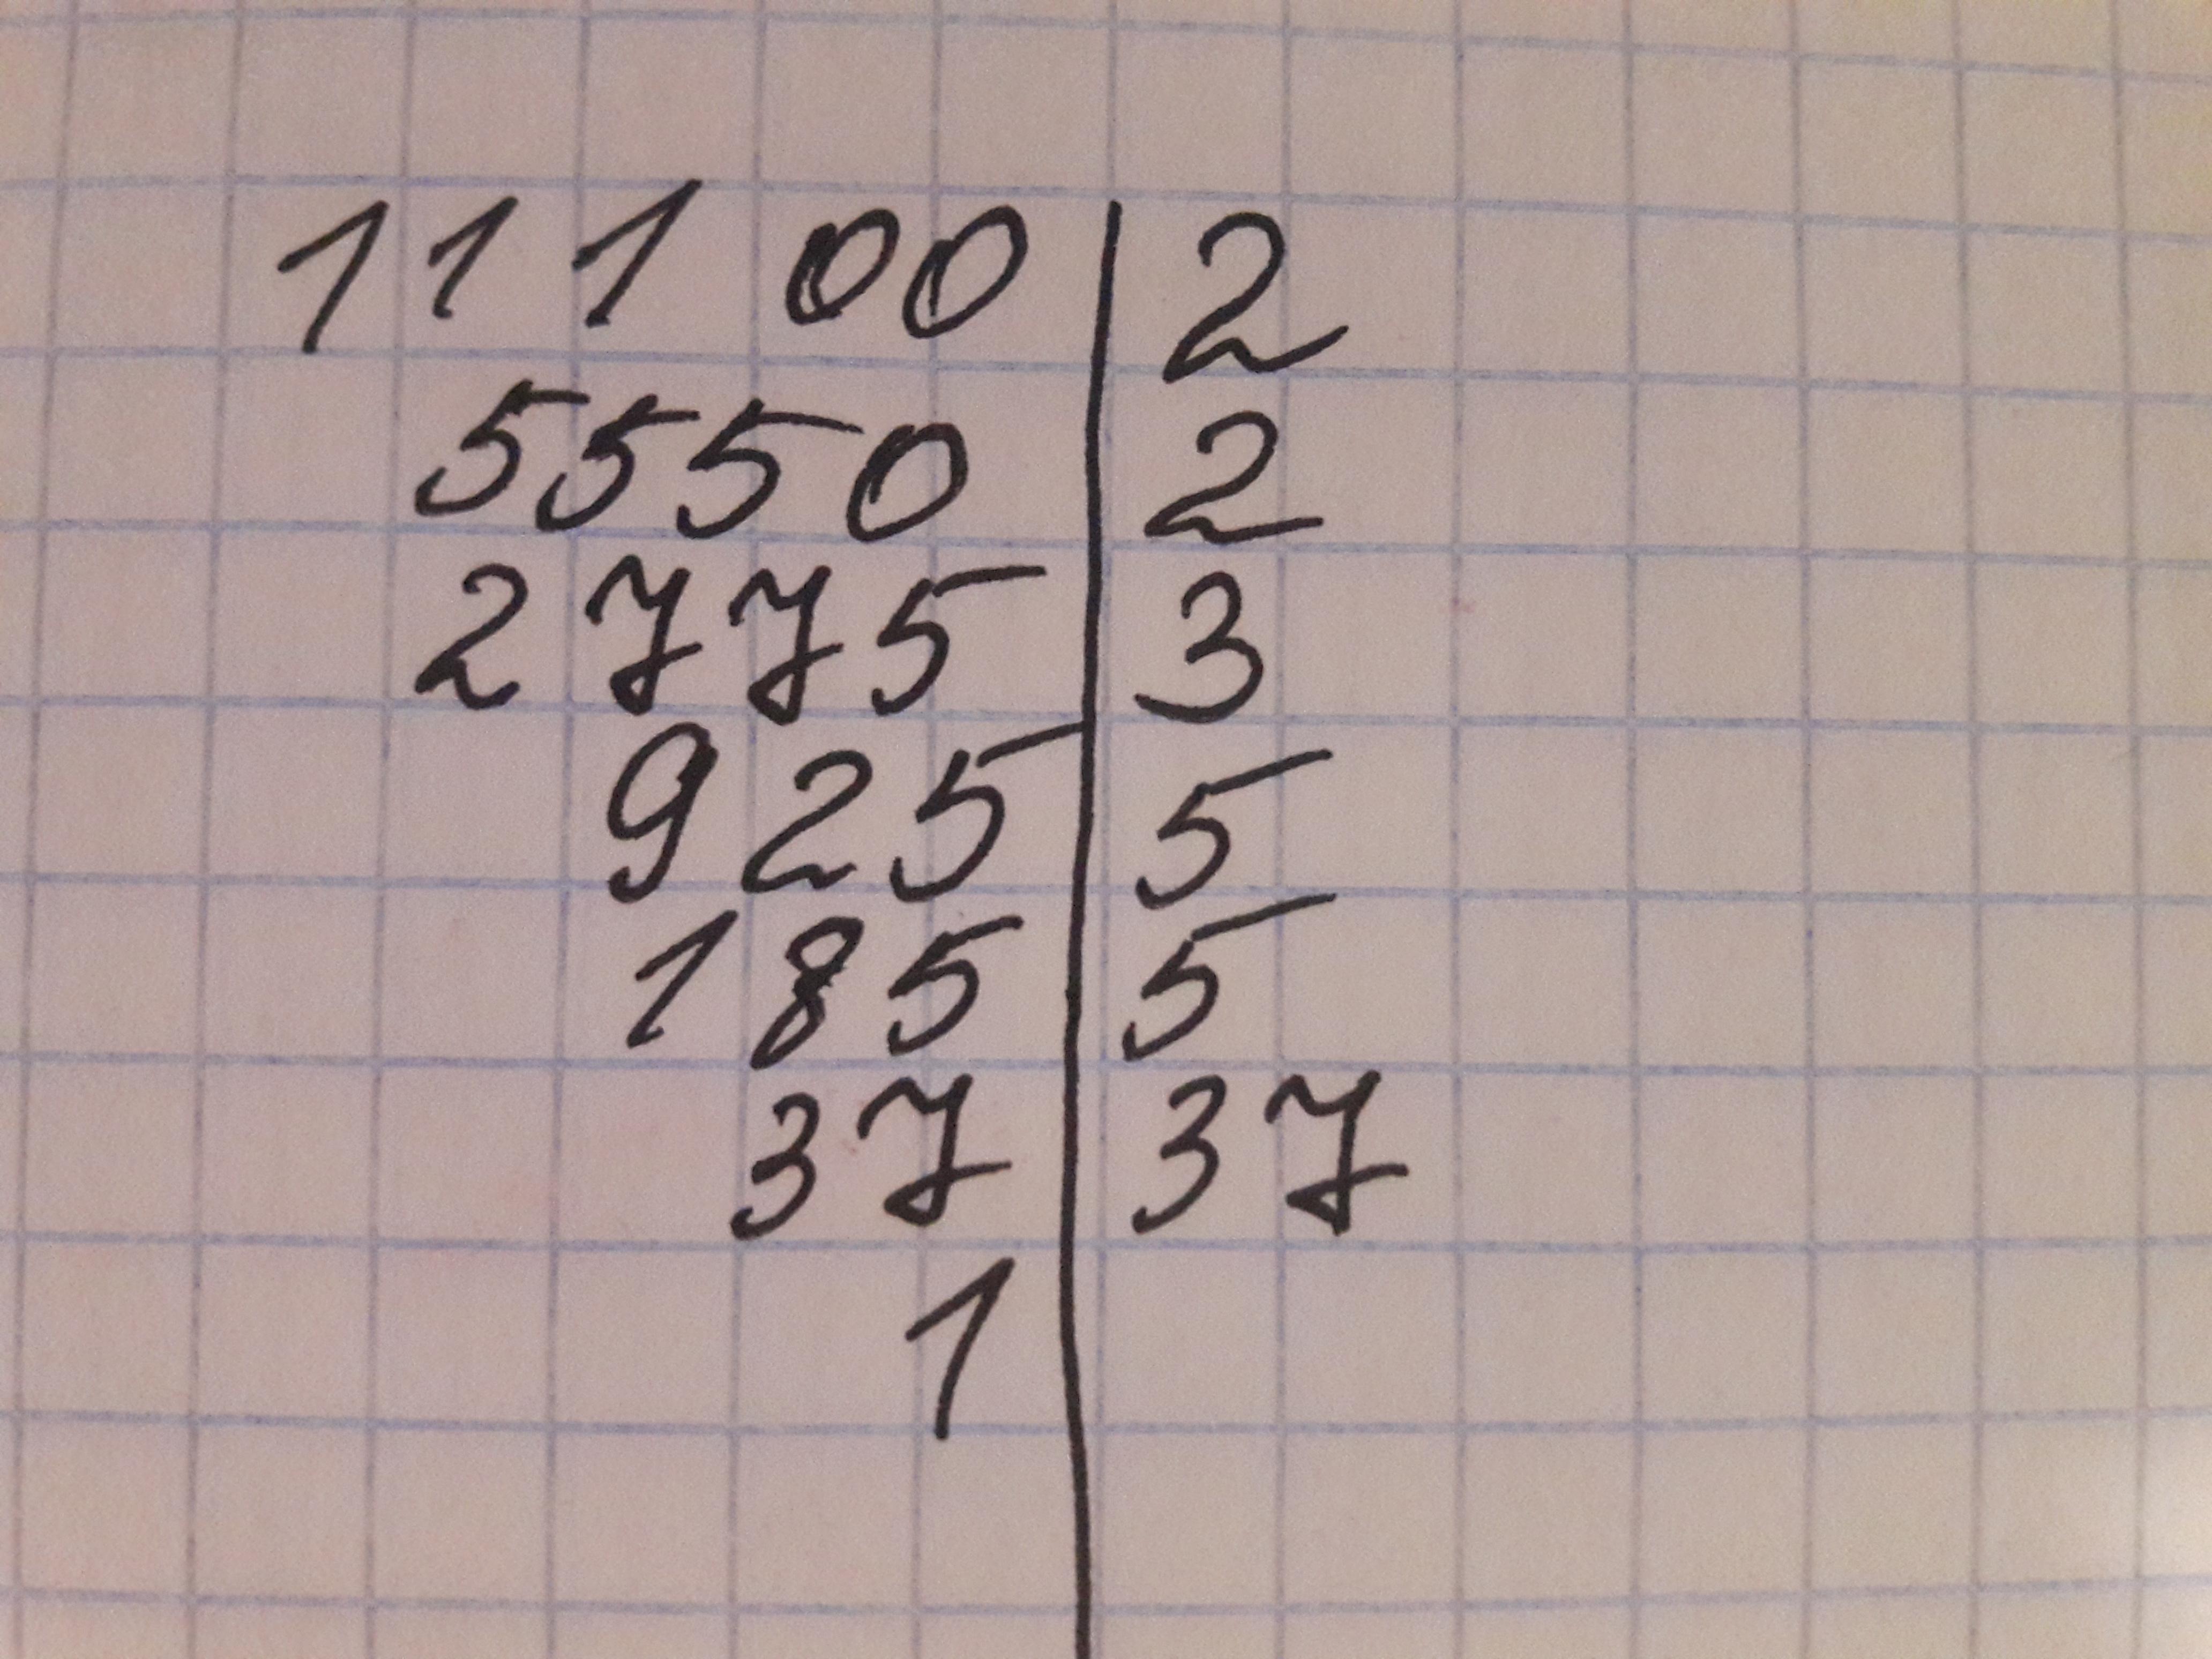 11100 | 2
5550 | 2
2775 | 3
925 | 5
185 | 5
37 | 37
1 |